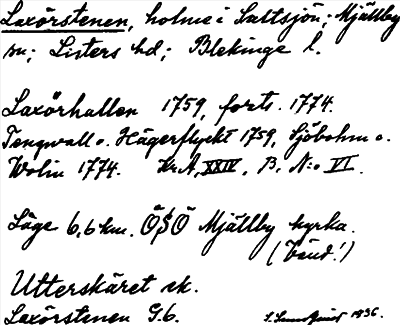 Laxörstenen, holme i Saltsjön; Mjällby
sn; Listers hd; Blekinge l.
Laxörhallen 1759, forts. 1774.
Tengwall o. Hägerflycht 1759, Sjöbohm o.
Wolin 1774. Kr.A, XXIV, B, N:o VI.
Läge 6,6 km. ÖSÖ Mjällby kyrka.
(Vänd!)
Utterskäret ek.
Laxörstenen G.b.
1936.